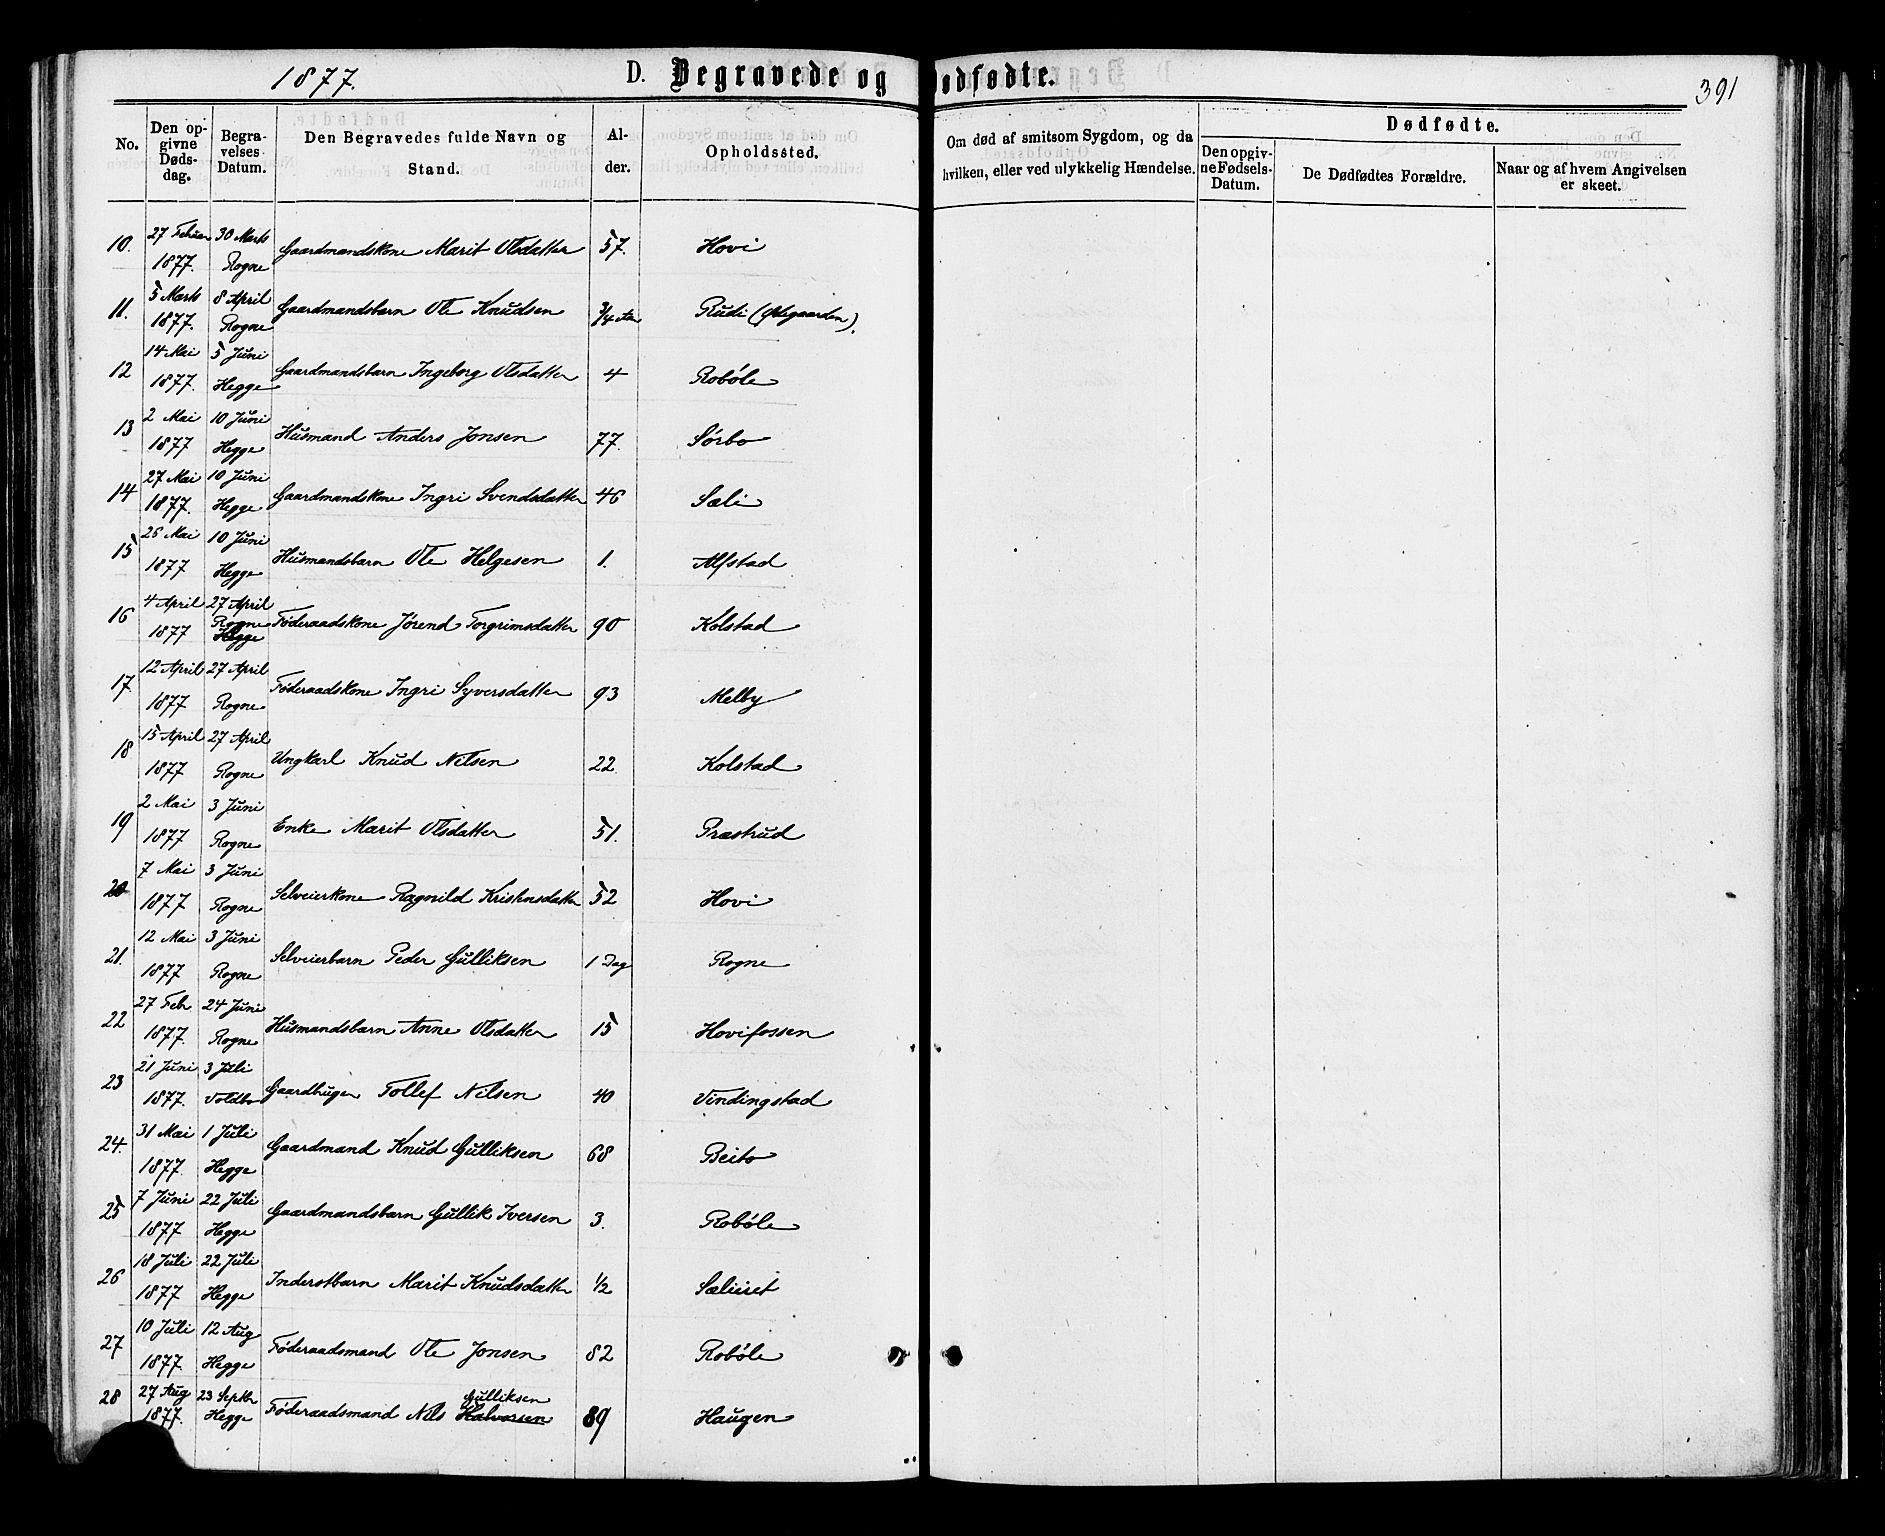 1877.
D. Begravede og Dødfødte.
391
No.
Den opgivne Dødsdag.
Begravelses Datum.
Den Begravedes fulde Navn og Stand.
Alder.
Opholdssted.
Om død af smitsom Sygdom, og da hvilken, eller ved ulykkelig Hændelse.
Dødfødte.
Den opgivne Fødsels-Datum.
De Dødfødtes Forældre.
Naar og af hvem Angivelsen er skeet.
10. 27 Februar 1877. 30 Marts Rogne Gaardmandskone Marit Olsdatter 57. Hovi
11. 5 Marts 1877. 8 April Rogne Gaardmandsbarn Ole Knudsen 3/4 Aar Rudi (Østgaarden).
12 14 Mai 1877. 5 Juni Hegge Gaardmandsbarn Ingeborg Olsdatter 4 Robøle
13 2 Mai 1877 10 Juni Hegge Husmand Anders Jonsen 77. Sørbo
14 27 Mai 1877. 10 Juni Hegge Gaardmandskone Ingri Svendsdatter 46 Sæli
15 26 Mai 1877 10 Juni Hegge Husmandsbarn Ole Helgesen 1. Alfstad
16 4 April 1877 27 April Rogne Hegge Føderaadskone Jørend Torgrimsdatter 90 Kolstad
17 12 April 1877 27 April Rogne Føderaadskone Ingri Syversdatter 93 Melby
18 15 April 1877 27 April Rogne Ungkarl Knud Nilsen 22 Kolstad
19 2 Mai 1877 3 Juni Rogne Enke Marit Olsdatter 51. Præstrud
20 7 Mai 1877 3 Juni Rogne Selveierkone Ragnild Kristensdatter 52 Hovi
21. 12 Mai 1877 3 Juni Rogne Selveierbarn Peder Gulliksen 1 Dag Rogne
22 27 Feb 1877. 24 Juni Rogne Husmandsbarn Anne Olsdatter 15 Hovifossen
23 21 Juni 1877. 3 Juli Voldbo Gaardbruger Tollef Nilsen 40 Vindingstad
24. 31 Mai 1877. 1 Juli Hegge Gaardmand Knud Gulliksen 68 Beito
25 7 Juni 1877 22 Juli Hegge Gaardmandsbarn Gullik Iversen 3. Robøle
26 18 Juli 1877 22 Juli Hegge Inderstbarn Marit Knudsdatter 1/2
27 10 Juli 1877. 12 Aug Hegge Føderaadsmand Ole Jonsen 82 Robøle
28 27 Aug 1877. 23 Septbr Hegge Føderaadsmand Nils Halvorsen Gulliksen 89 Haugen